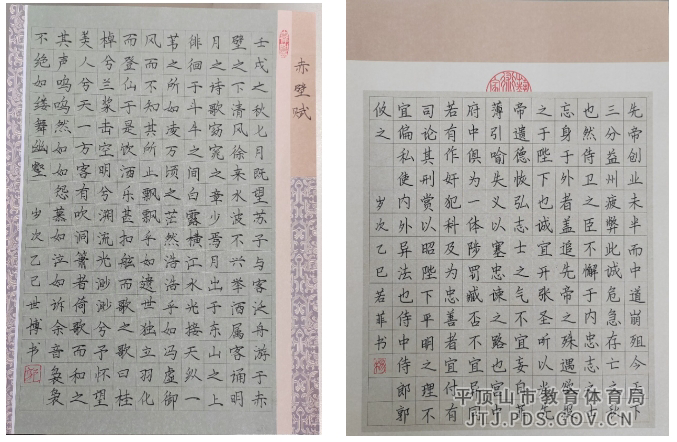 赤壁赋
壬戌之秋七月既望苏子与客泛舟游于赤
壁之下清风徐来水波不兴举酒属客诵明
月之诗歌窈窕之章少焉月出于东山之上
徘徊于斗牛之间白露横江水光接天纵一
苇之所如凌万顷之茫然浩浩乎如冯虚御
风而不知其所止飘飘乎如遗世独立羽化
而登仙于是饮酒乐甚扣舷而歌之歌曰桂
棹兮兰桨击空明兮溯流光渺渺兮予怀望
美人兮天一方客有吹洞箫者倚歌而和之
其声呜呜然如怨如慕如泣如诉余音袅袅
不绝如缕舞幽壑 岁次乙巳世博书
先帝创业未半而中道崩殂今天下
三分益州疲弊此诚危急存亡之秋
也然侍卫之臣不懈于内忠志之士
忘身于外者盖追先帝之殊遇欲报
之于陛下也诚宜开张圣听以光先
帝遗德恢弘志士之气不宜妄自菲
薄引喻失义以塞忠谏之路也宫中
府中俱为一体陟罚臧否不宜异同
若有作奸犯科及为忠善者宜付有
司论其刑赏以昭陛下平明之理不
宜偏私使内外异法也侍中侍郎郭
攸之 岁次乙巳若菲书
平顶山市教育体育局
JTJ.PDS.GOV.CN